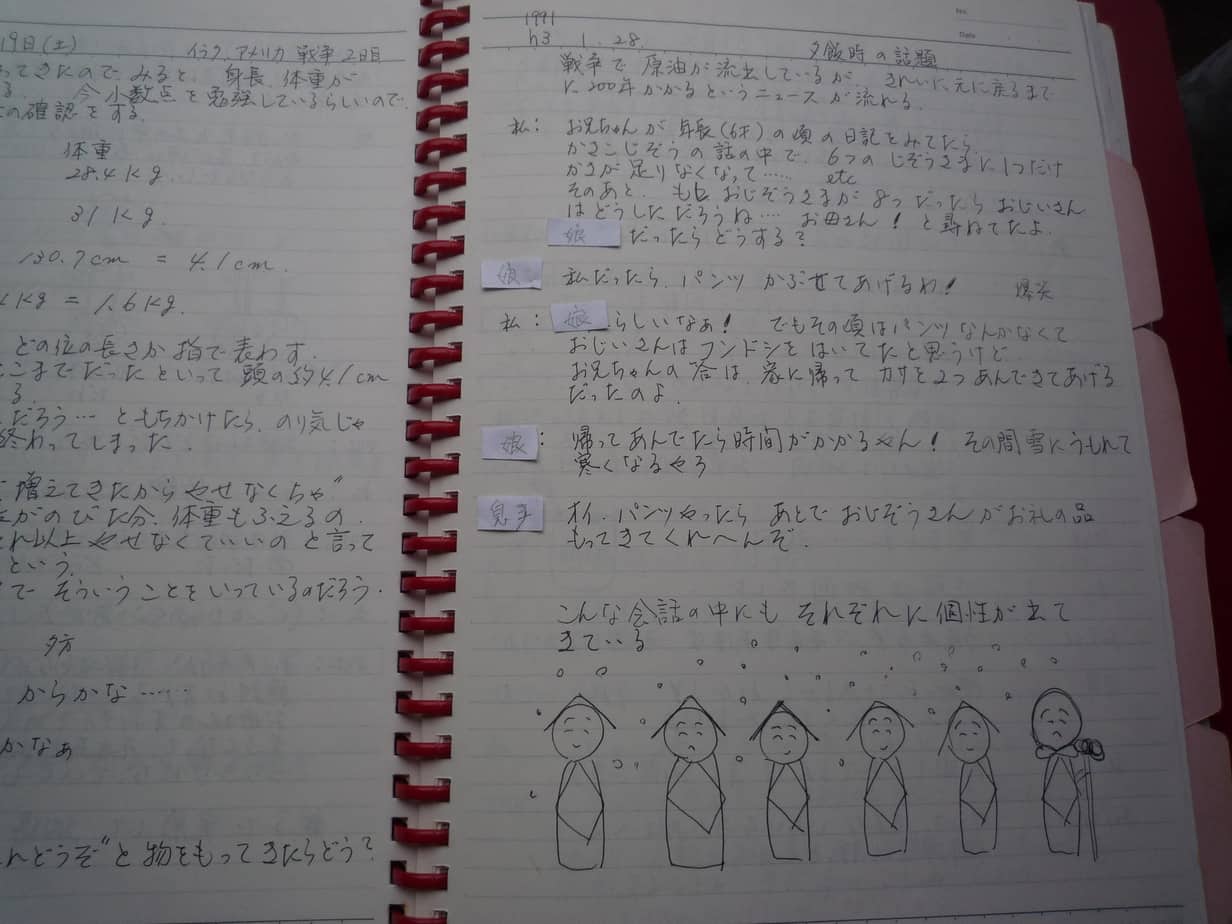 19日(土) イラク アメリカ 戦争 2日目
ってきたので みると、身長、体重が
る. 今 小数点を勉強しているらしいので
の確認をする.
体重
28.4 kg.
31 kg.
130.7cm = 4.1cm.
kg = 1.6kg.
どの位の長さか 指で表わす.
こまで だったといって 頭の 4.1cm
る.
だろう… ともちかけたら、のり気じゃ
終わってしまった.
増えてきたから やせなくちゃ"
がのびた分、体重もふえるの.
れ以上 やせなくていいの と言って
という.
で そういうことをいっているのだろう.
夕方
からかな……
かなぁ
んどうぞ"と 物をもってきたらどう?
No.
Date
1991
h3 1. 28.
夕飯時の話題
戦争で 原油が流出しているが、きれいに元に戻るまで
に 200年かかるというニュースが流れる.
私: お兄ちゃんが 年長(6才)の頃の日記をみてたら
かさこじぞうの話の中で、6つの じぞうさまに 1つだけ
かさが足りなくなって…… etc
そのあと、もし おじぞうさまが 8つだったら おじいさん
はどうしただろうね… お母さん! と尋ねてたよ.
娘 だったら どうする?
娘 私だったら、パンツ かぶせてあげるわ! 爆笑
私: 娘 らしいなぁ! でもその頃はパンツなんかなくて
おじいさんは フンドシを はいてたと思うけど
お兄ちゃんの 答は、家に帰って カサを2つ あんできてあげる
だったのよ.
娘: 帰って あんでたら時間がかかるやん! その間雪にうもれて
寒くなるやろ
息子 オイ、パンツやったら あとで おじぞうさんがお礼の品
もってきてくれへんぞ.
こんな会話の中にも それぞれに個性が出て
きている